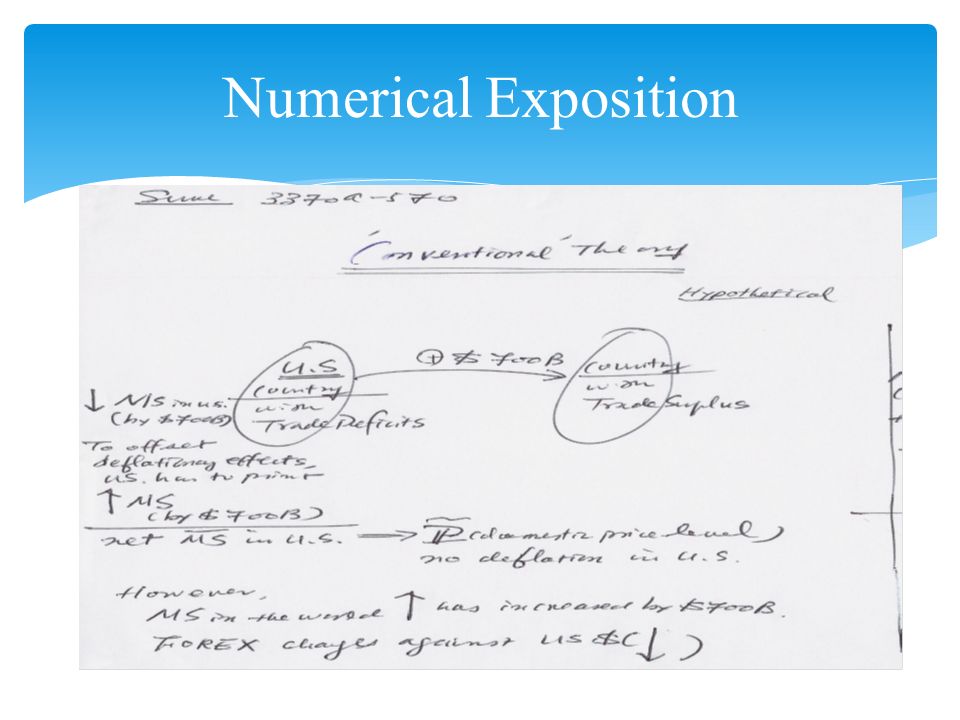 Numerical Exposition
3370a-570
'Conventional' Theory
Hypothetical
U.S
Country
with
Trade Deficits
⊕ $ 700B
Country
with
Trade Suplus
↓ MS in us.
(by $700B)
To offset
deflationary effects,
us. has to print
↑ MS
(by $700B)
net MS in U.S. → P (domestic price level)
no deflation in U.S.
However,
MS in the world ↑ has increased by $700B.
FOREX changes against US $(↓)